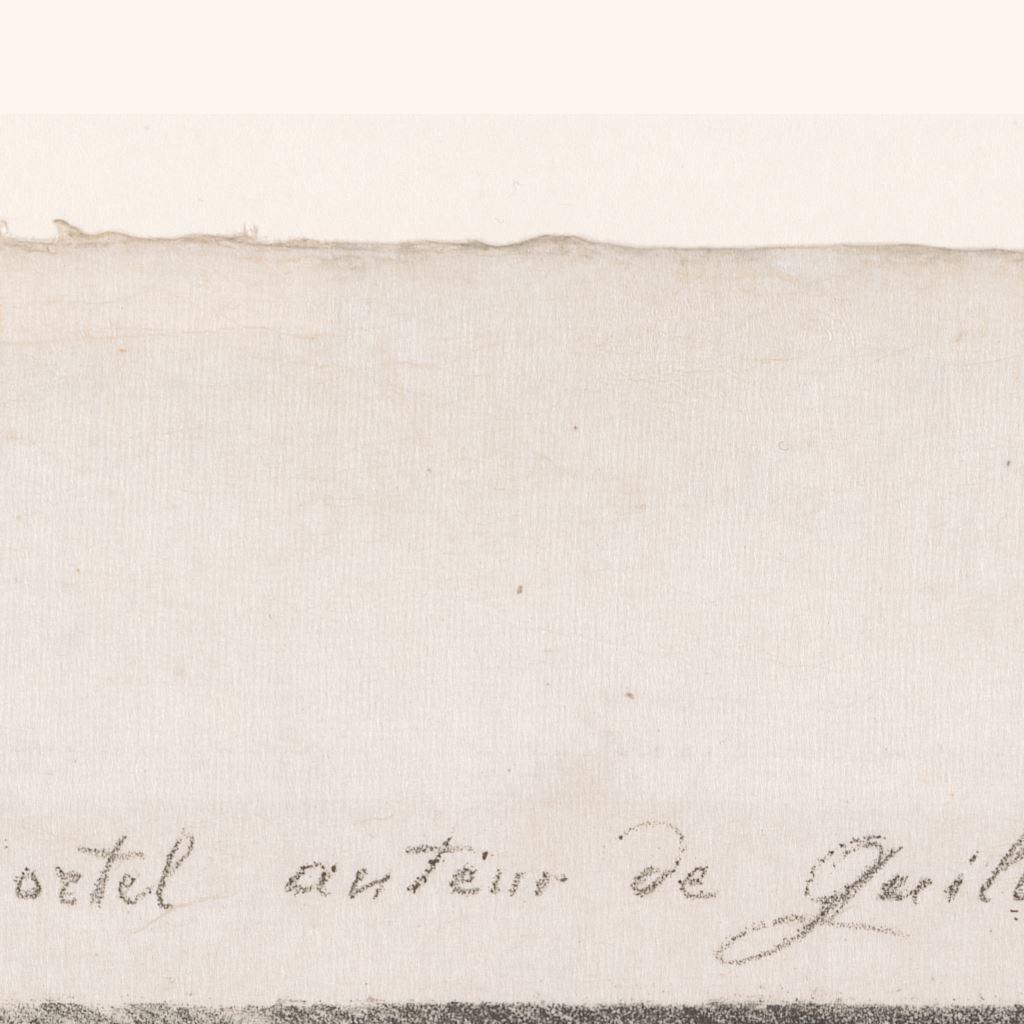 ortel auteur de Guil